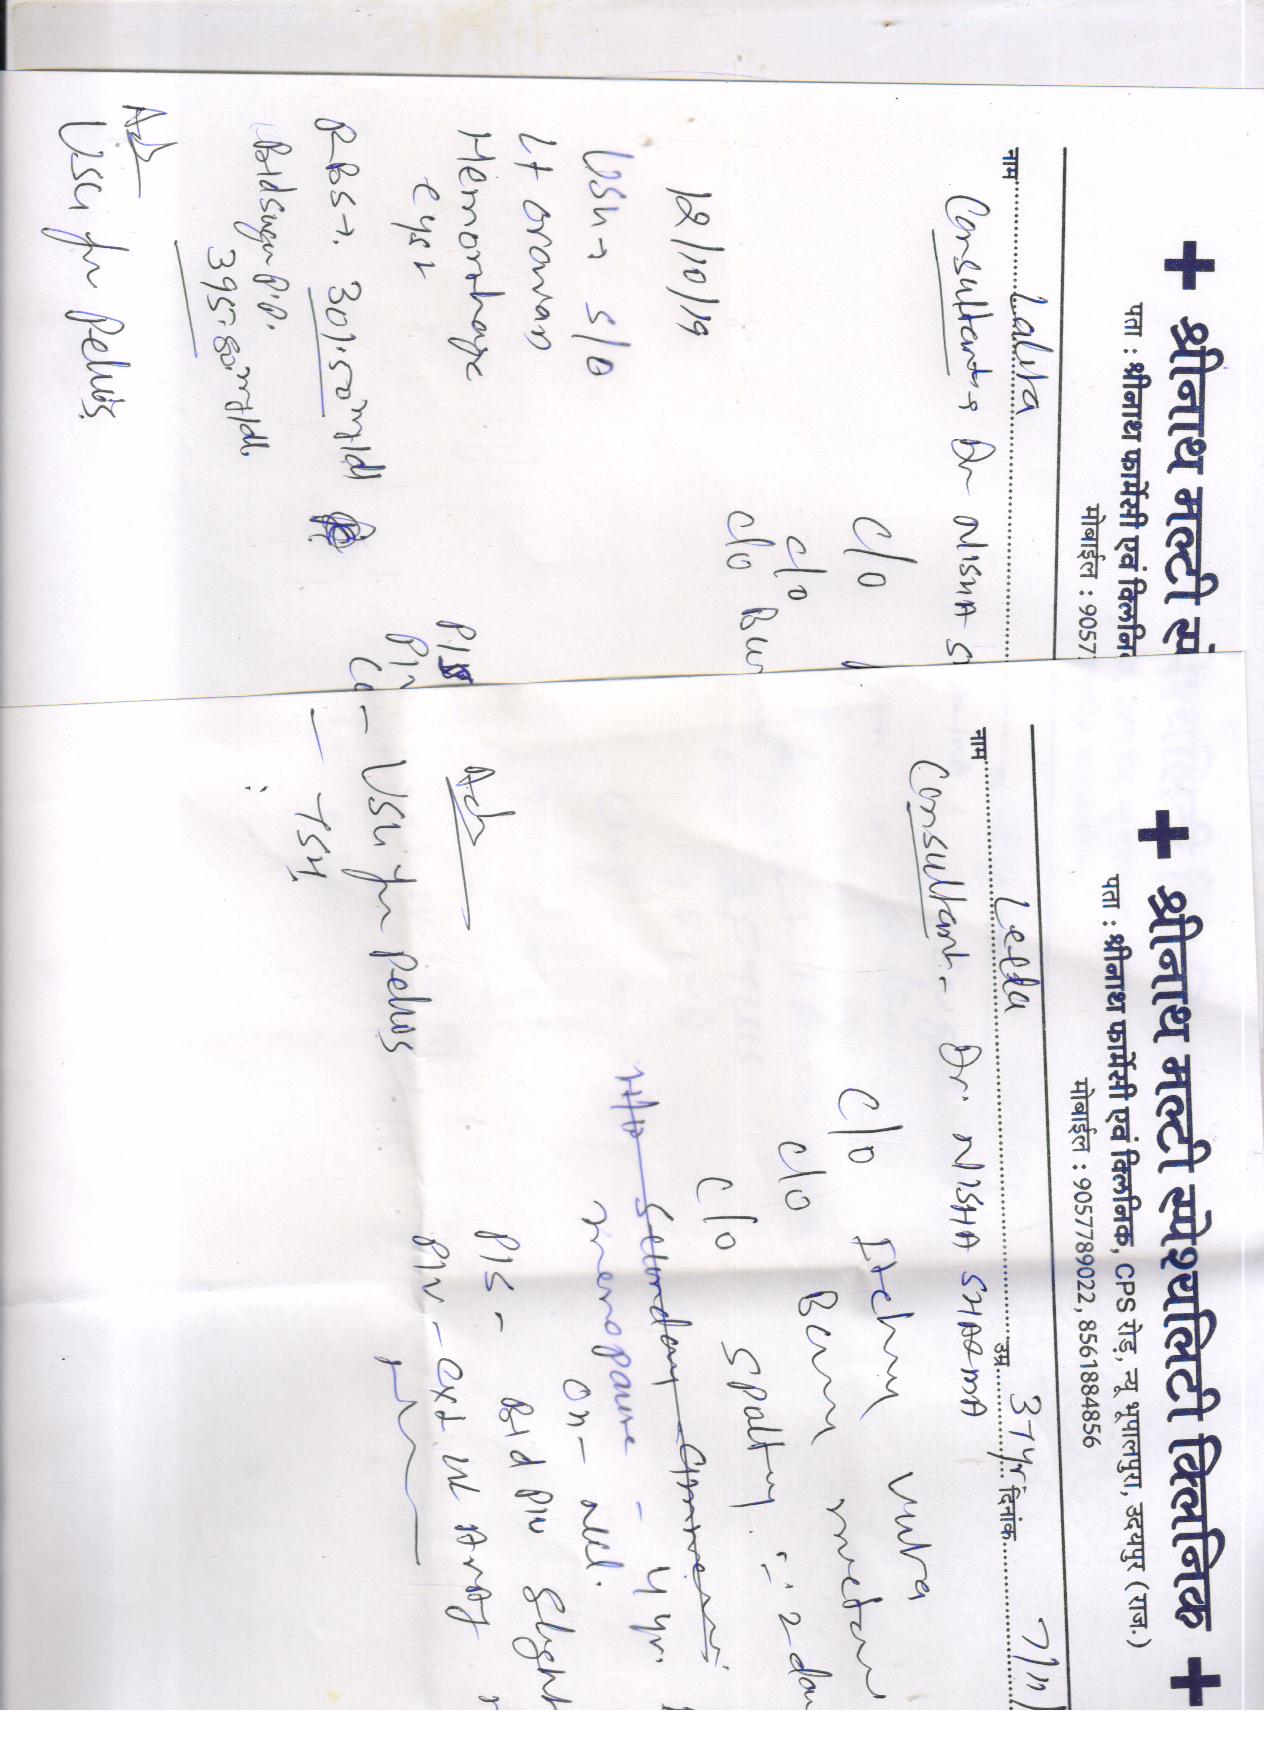 ✚ श्रीनाथ मल्टी स्पे
पता : श्रीनाथ फार्मेसी एवं क्लिनि
मोबाईल : 9057
नाम Lalita
Consultant → Dr NISHA S
C/O
C/O
C/O Bur
12/10/19
USG → S/O
Lt ovarian
Hemorrhage
cyst
RBS →. 301.50 mg/dl
Bld sugar P.P.
395.80 mg/dl.
Adv
USG for Pelvis
✚ श्रीनाथ मल्टी स्पेश्यलिटी क्लिनिक ✚
पता : श्रीनाथ फार्मेसी एवं क्लिनिक, CPS रोड़, न्यू भूपालपुरा, उदयपुर (राज.)
मोबाईल : 9057789022, 8561884856
नाम Leela उम्र 37 yr दिनांक
Consultant - Dr. NISHA SHARMA
C/O Itchy vulva
C/O Burn mictur
C/O Spotting. ∵ 2 day
menopause - 4 yr.
On - Nil.
P/S - Bld P/V slight
P/V -
Adv
- USG for Pelvis
- TSH.